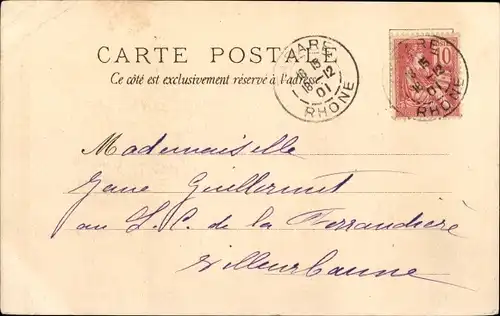 CARTE POSTALE
Ce côté est exclusivement réservé à l'adresse
18 -12
01
RHÔNE
10
RHÔNE
Mademoiselle
Jane Guillermet
au S. C. de la Ferrandière
Villeurbanne